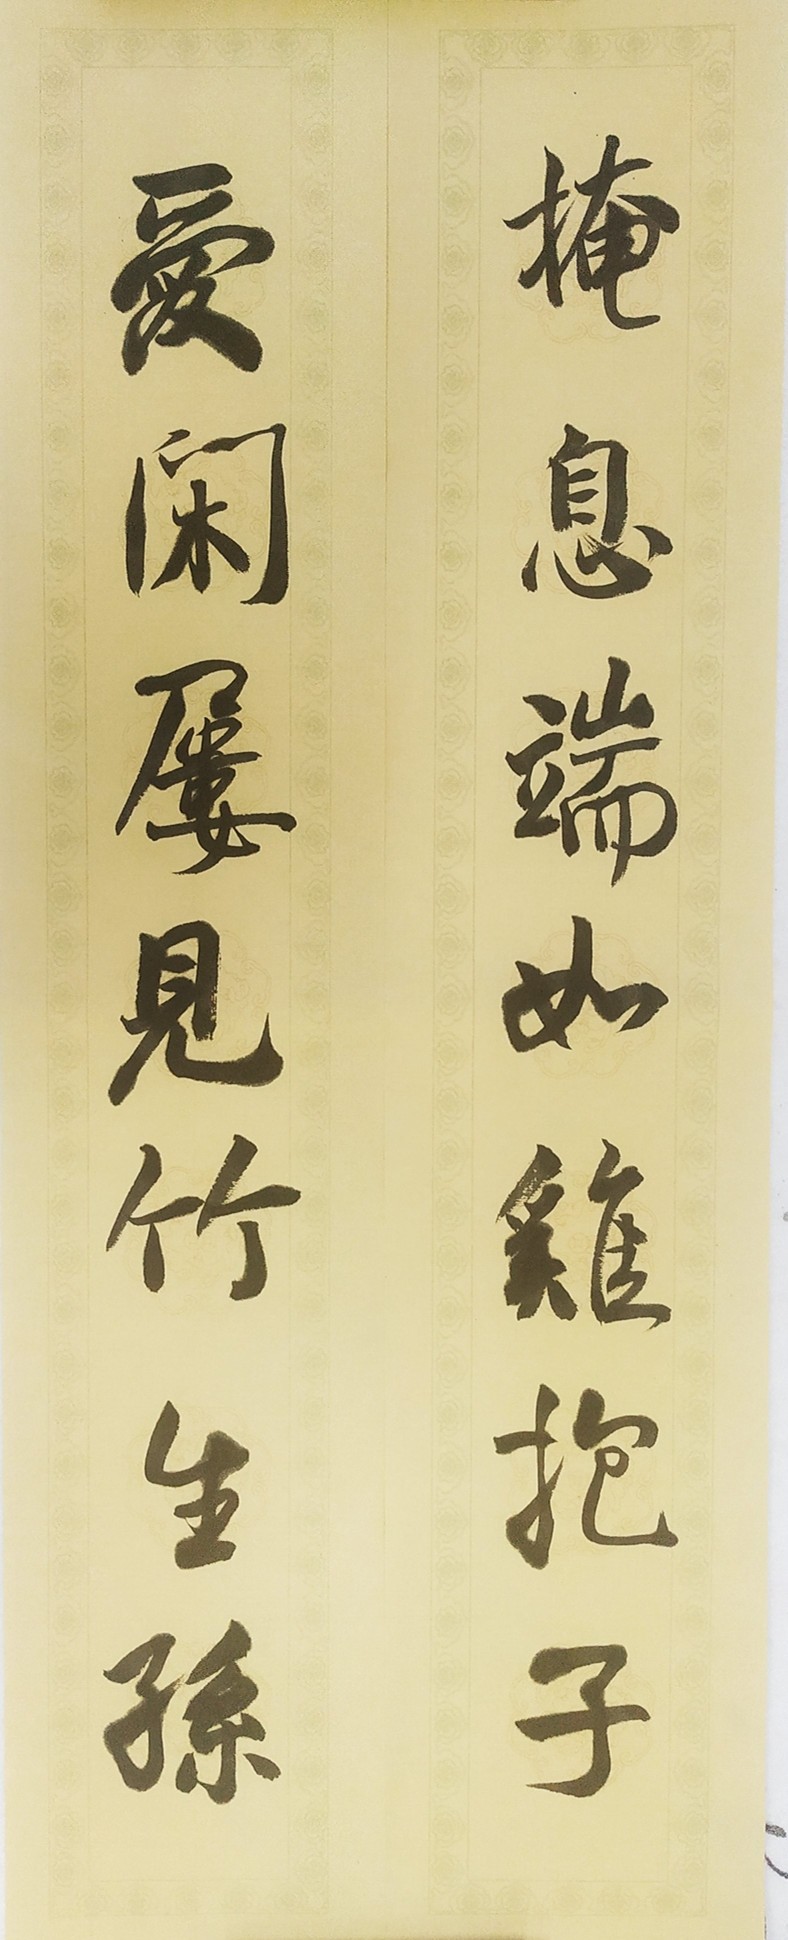 掩息端如雞抱子
愛閑屢見竹生孫